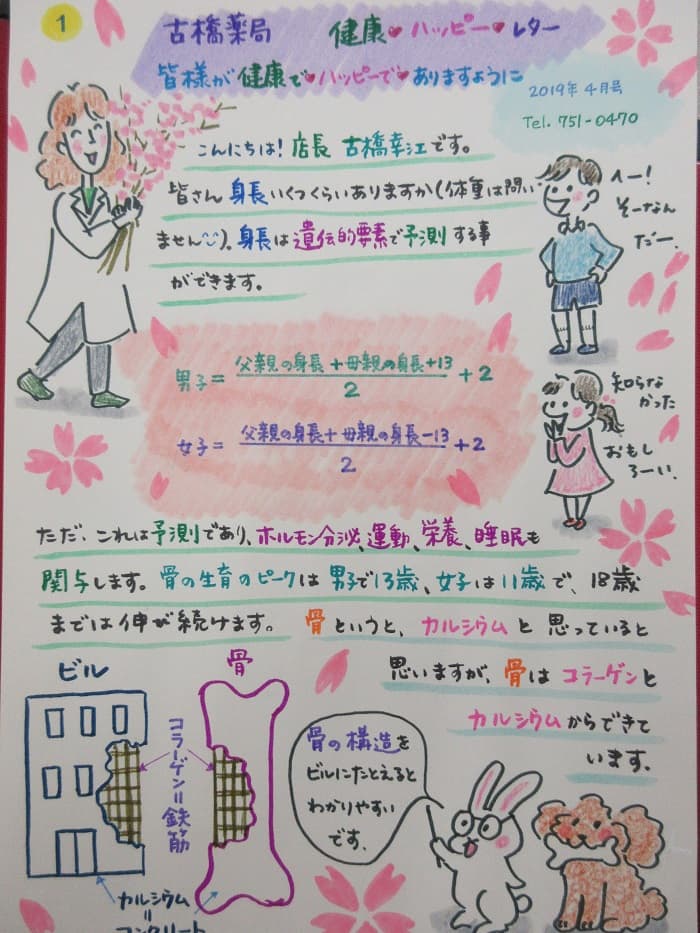 1
古橋薬局 健康♥ハッピー♥レター
皆様が健康で♥ハッピーで♥ありますように
2019年4月号
Tel. 751-0470
こんにちは!店長 古橋幸江です。
皆さん身長いくつくらいありますか(体重は問い
ません^^)。身長は遺伝的要素で予測する事
ができます。
へー!
そーなん
だー、
男子=(父親の身長+母親の身長+13)/2+2
女子=(父親の身長+母親の身長-13)/2+2
知らな
かった
おもし
ろーい、
ただ、これは予測であり、ホルモン分泌、運動、栄養、睡眠も
関与します。骨の生育のピークは男子で13歳、女子は11歳で、18歳
までは伸び続けます。 骨というと、カルシウムと思っていると
思いますが、骨はコラーゲンと
カルシウムからできて
います。
ビル
骨
コラーゲン=鉄筋
カルシウム
=
コンクリート
骨の構造を
ビルにたとえると
わかりやすい
です。